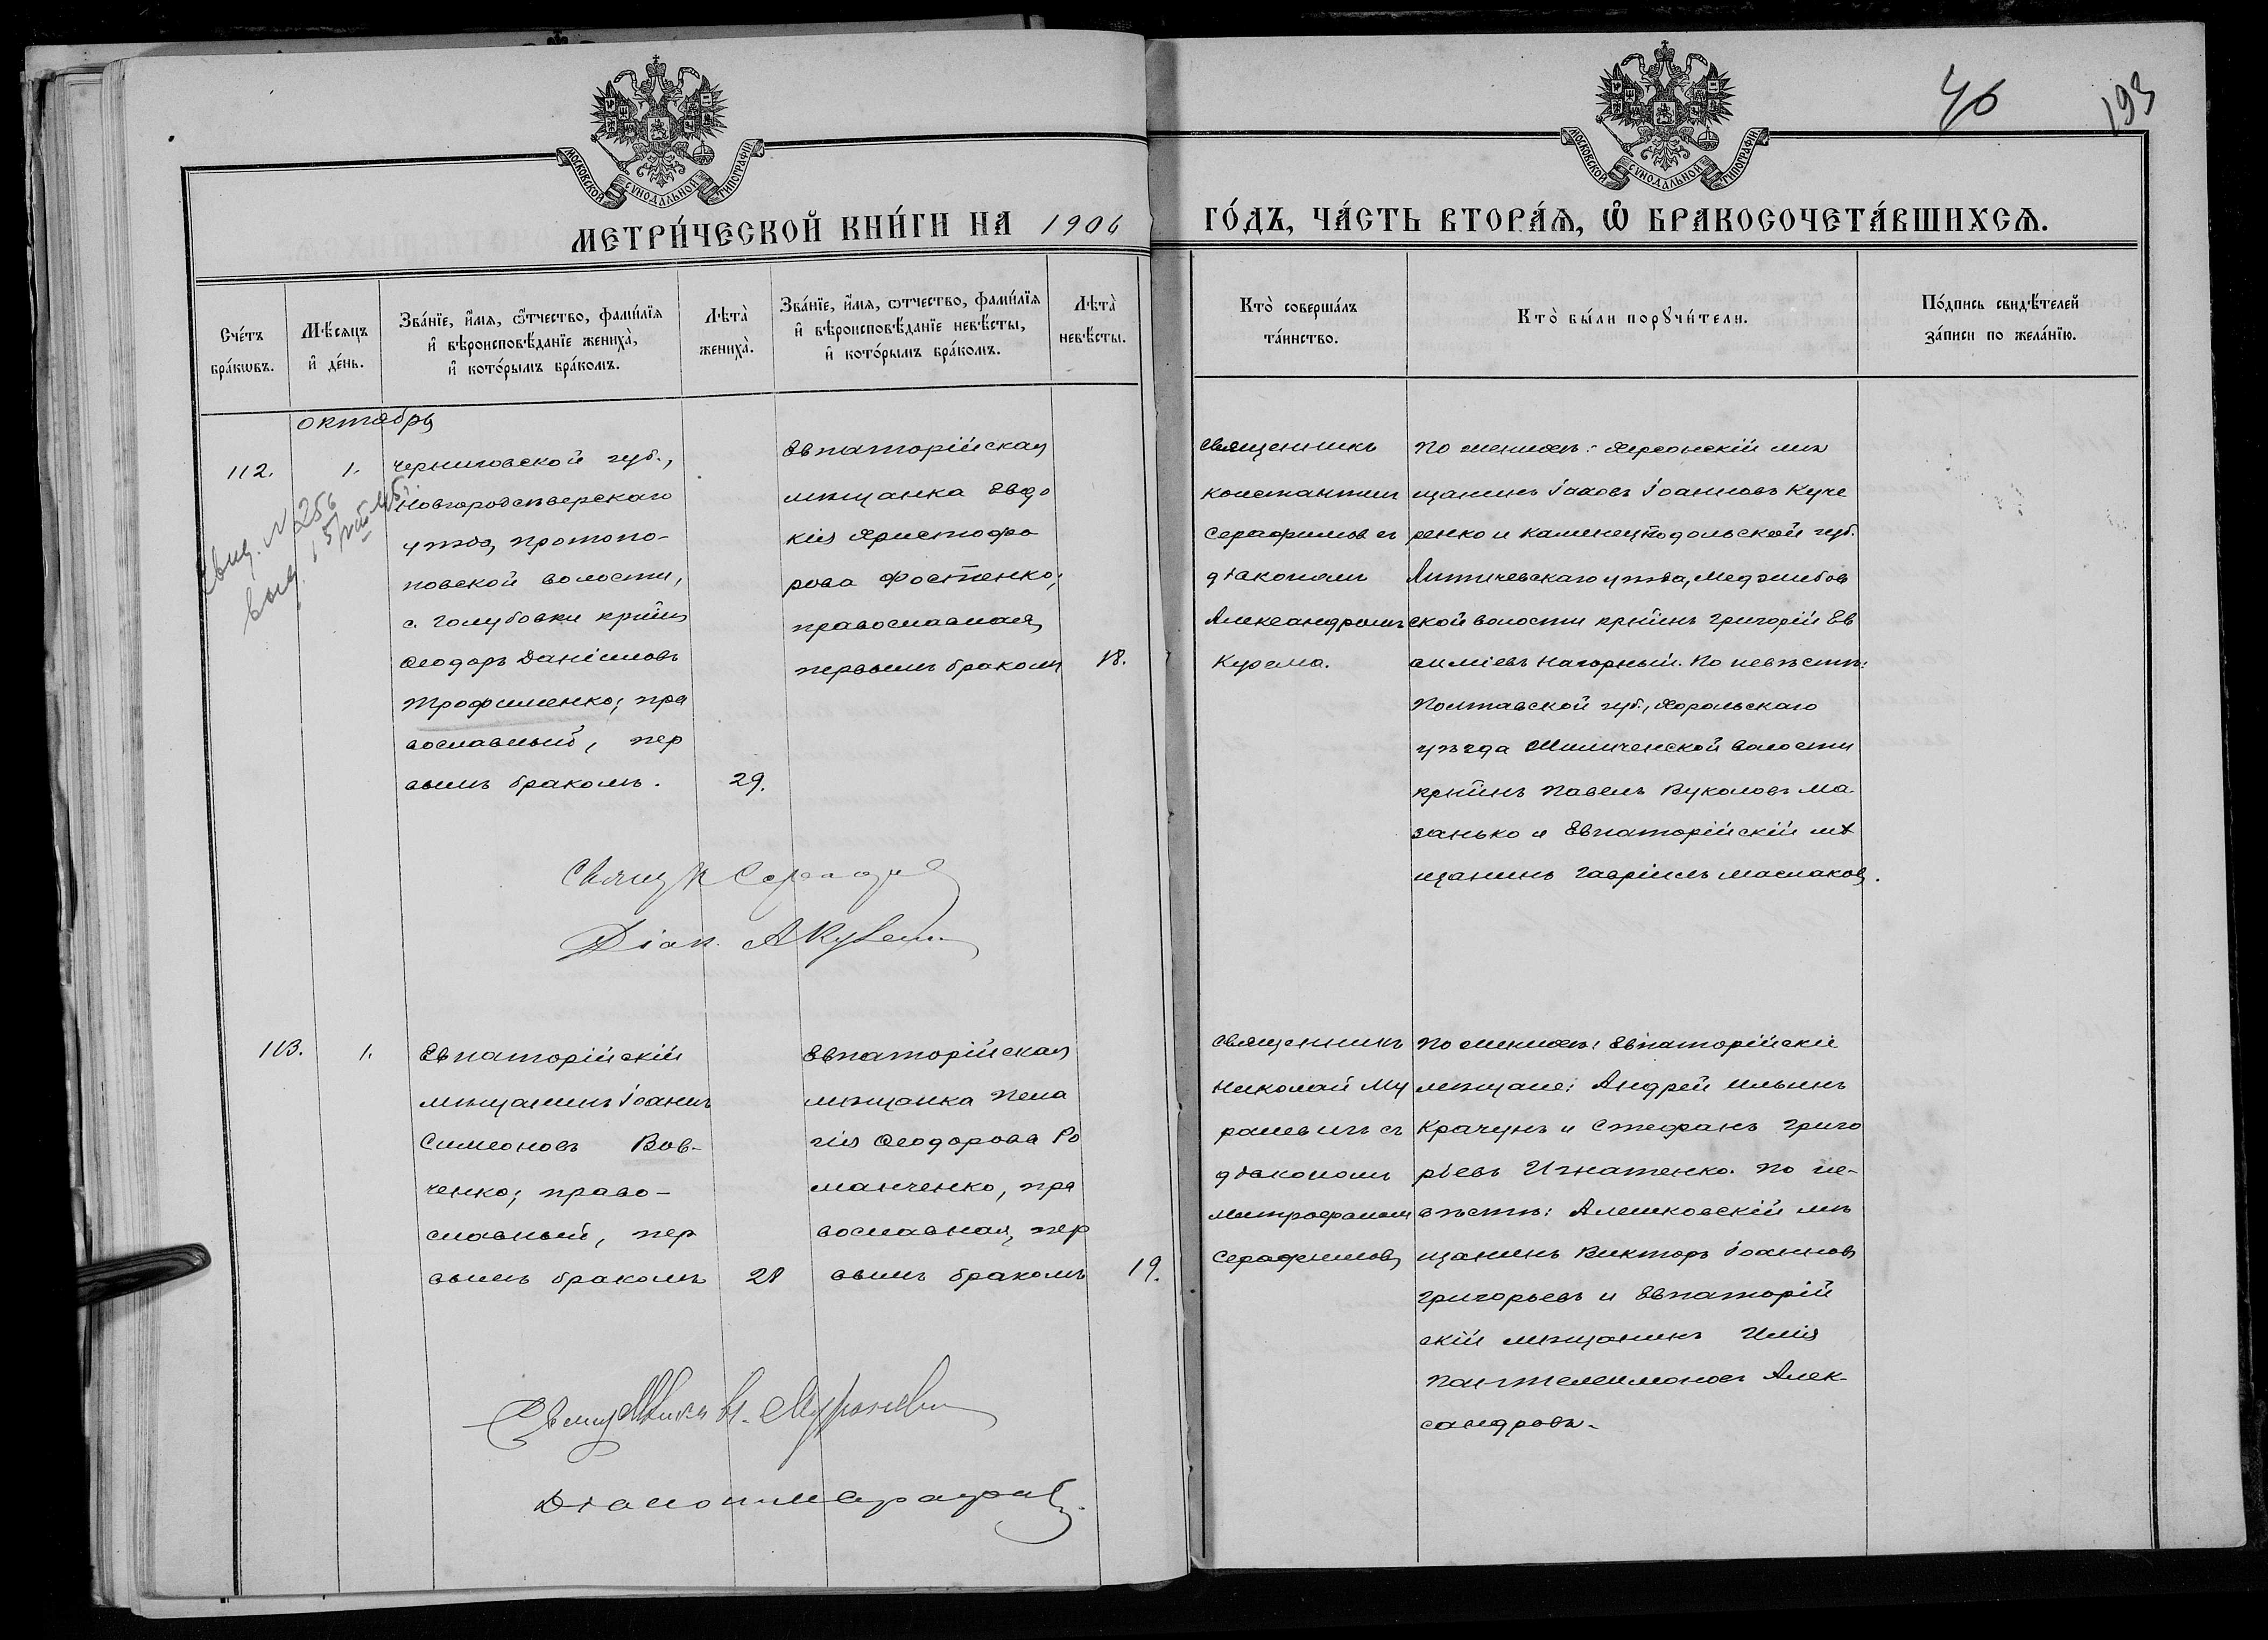 46
193
МОСКОВСКОЙ СѴНОДАЛЬНОЙ ТИПОГРАФІИ
МОСКОВСКОЙ СѴНОДАЛЬНОЙ ТИПОГРАФІИ
МЕТРИ́ЧЕСКОЙ КНИ́ГИ НА 1906
ГО́ДЪ, ЧА́СТЬ ВТОРА́Ѧ, Ѡ҆ БРАКОСОЧЕТА́ВШИХСѦ.
Сче́тъ
бра́кѡвъ.
Мѣ́сяцъ
и҆ де́нь.
Зва́нїе, и҆́мя, ѻ҆́тчество, фами́лїя
и҆ вѣроисповѣ́данїе жениха̀,
и҆ кото́рымъ бра́комъ.
Лѣта̀
жениха̀.
Зва́нїе, и҆́мя, ѻ҆тчество, фами́лїя
и҆ вѣроисповѣ́данїе невѣ́сты,
и҆ кото́рымъ бра́комъ.
Лѣта̀
невѣ́сты.
Кто̀ соверша́лъ
та́инство.
Кто̀ бы́ли порꙋчи́тели.
По́дпись свидѣ́телей
за́писи по жела́нїю.
октября
112.
1.
Свид. № 256
выд.
Черниговской губ.,
Новгородсѣверскаго
уѣзда, Протопо-
повской волости,
с. Голубовки крⷭ҇инъ
Ѳеодоръ Даніиловъ
Трофименко; пра
вославный, пер
вымъ бракомъ.
29.
Евпаторійская
мѣщанка Евдо
кія Христофо
рова Фостенко;
православная,
первымъ бракомъ
18.
Священникъ
Константинъ
Серафимовъ съ
діакономъ
Александромъ
Курема.
По женихѣ: Херсонскій мѣ
щанинъ Іаковъ Іоанновъ Куче
ренко и Каменецподольской губ.
Литичевскаго уѣзда, Меджибов
ской волости крⷭ҇инъ Григорій Ев
филміевъ Нагорный. По невѣстѣ:
Полтавской губ., Хорольскаго
уѣзда Шишченской волости
крⷭ҇инъ Павелъ Вуколовъ Ма-
занько и Евпаторійскій мѣ
щанинъ Гавріилъ Маслаковъ.
Свящ К Серафимов
Діак. А Курема
113.
1.
Евпаторійскій
мѣщанинъ Іоаннъ
Симеоновъ Вов-
ченко; право-
славный, пер
вымъ бракомъ
28
Евпаторійская
мѣщанка Пела
гія Ѳеодорова Ро
манченко, пра
вославная, пер
вымъ бракомъ
19.
Священникъ
Николай Му
раневичъ съ
діакономъ
Митрофаномъ
Серафимовъ
По женихѣ: Евпаторійскіе
мѣщане: Андрей Ильинъ
Крачунъ и Стефанъ Григо
рьевъ Игнатенко. По не-
вѣстѣ: Алешковскій мѣ
щанинъ Викторъ Іоанновъ
Григорьевъ и Евпаторій
скій мѣщанинъ Илія
Пантелеимоновъ Алек-
сандровъ.
Священникъ Н. Мураневич
Діаконъ М Серафимовъ